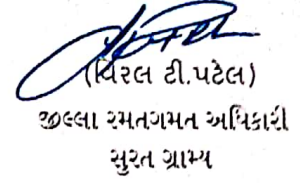 (વિરલ ટી.પટેલ)
જીલ્લા રમતગમત અધિકારી
સુરત ગ્રામ્ય